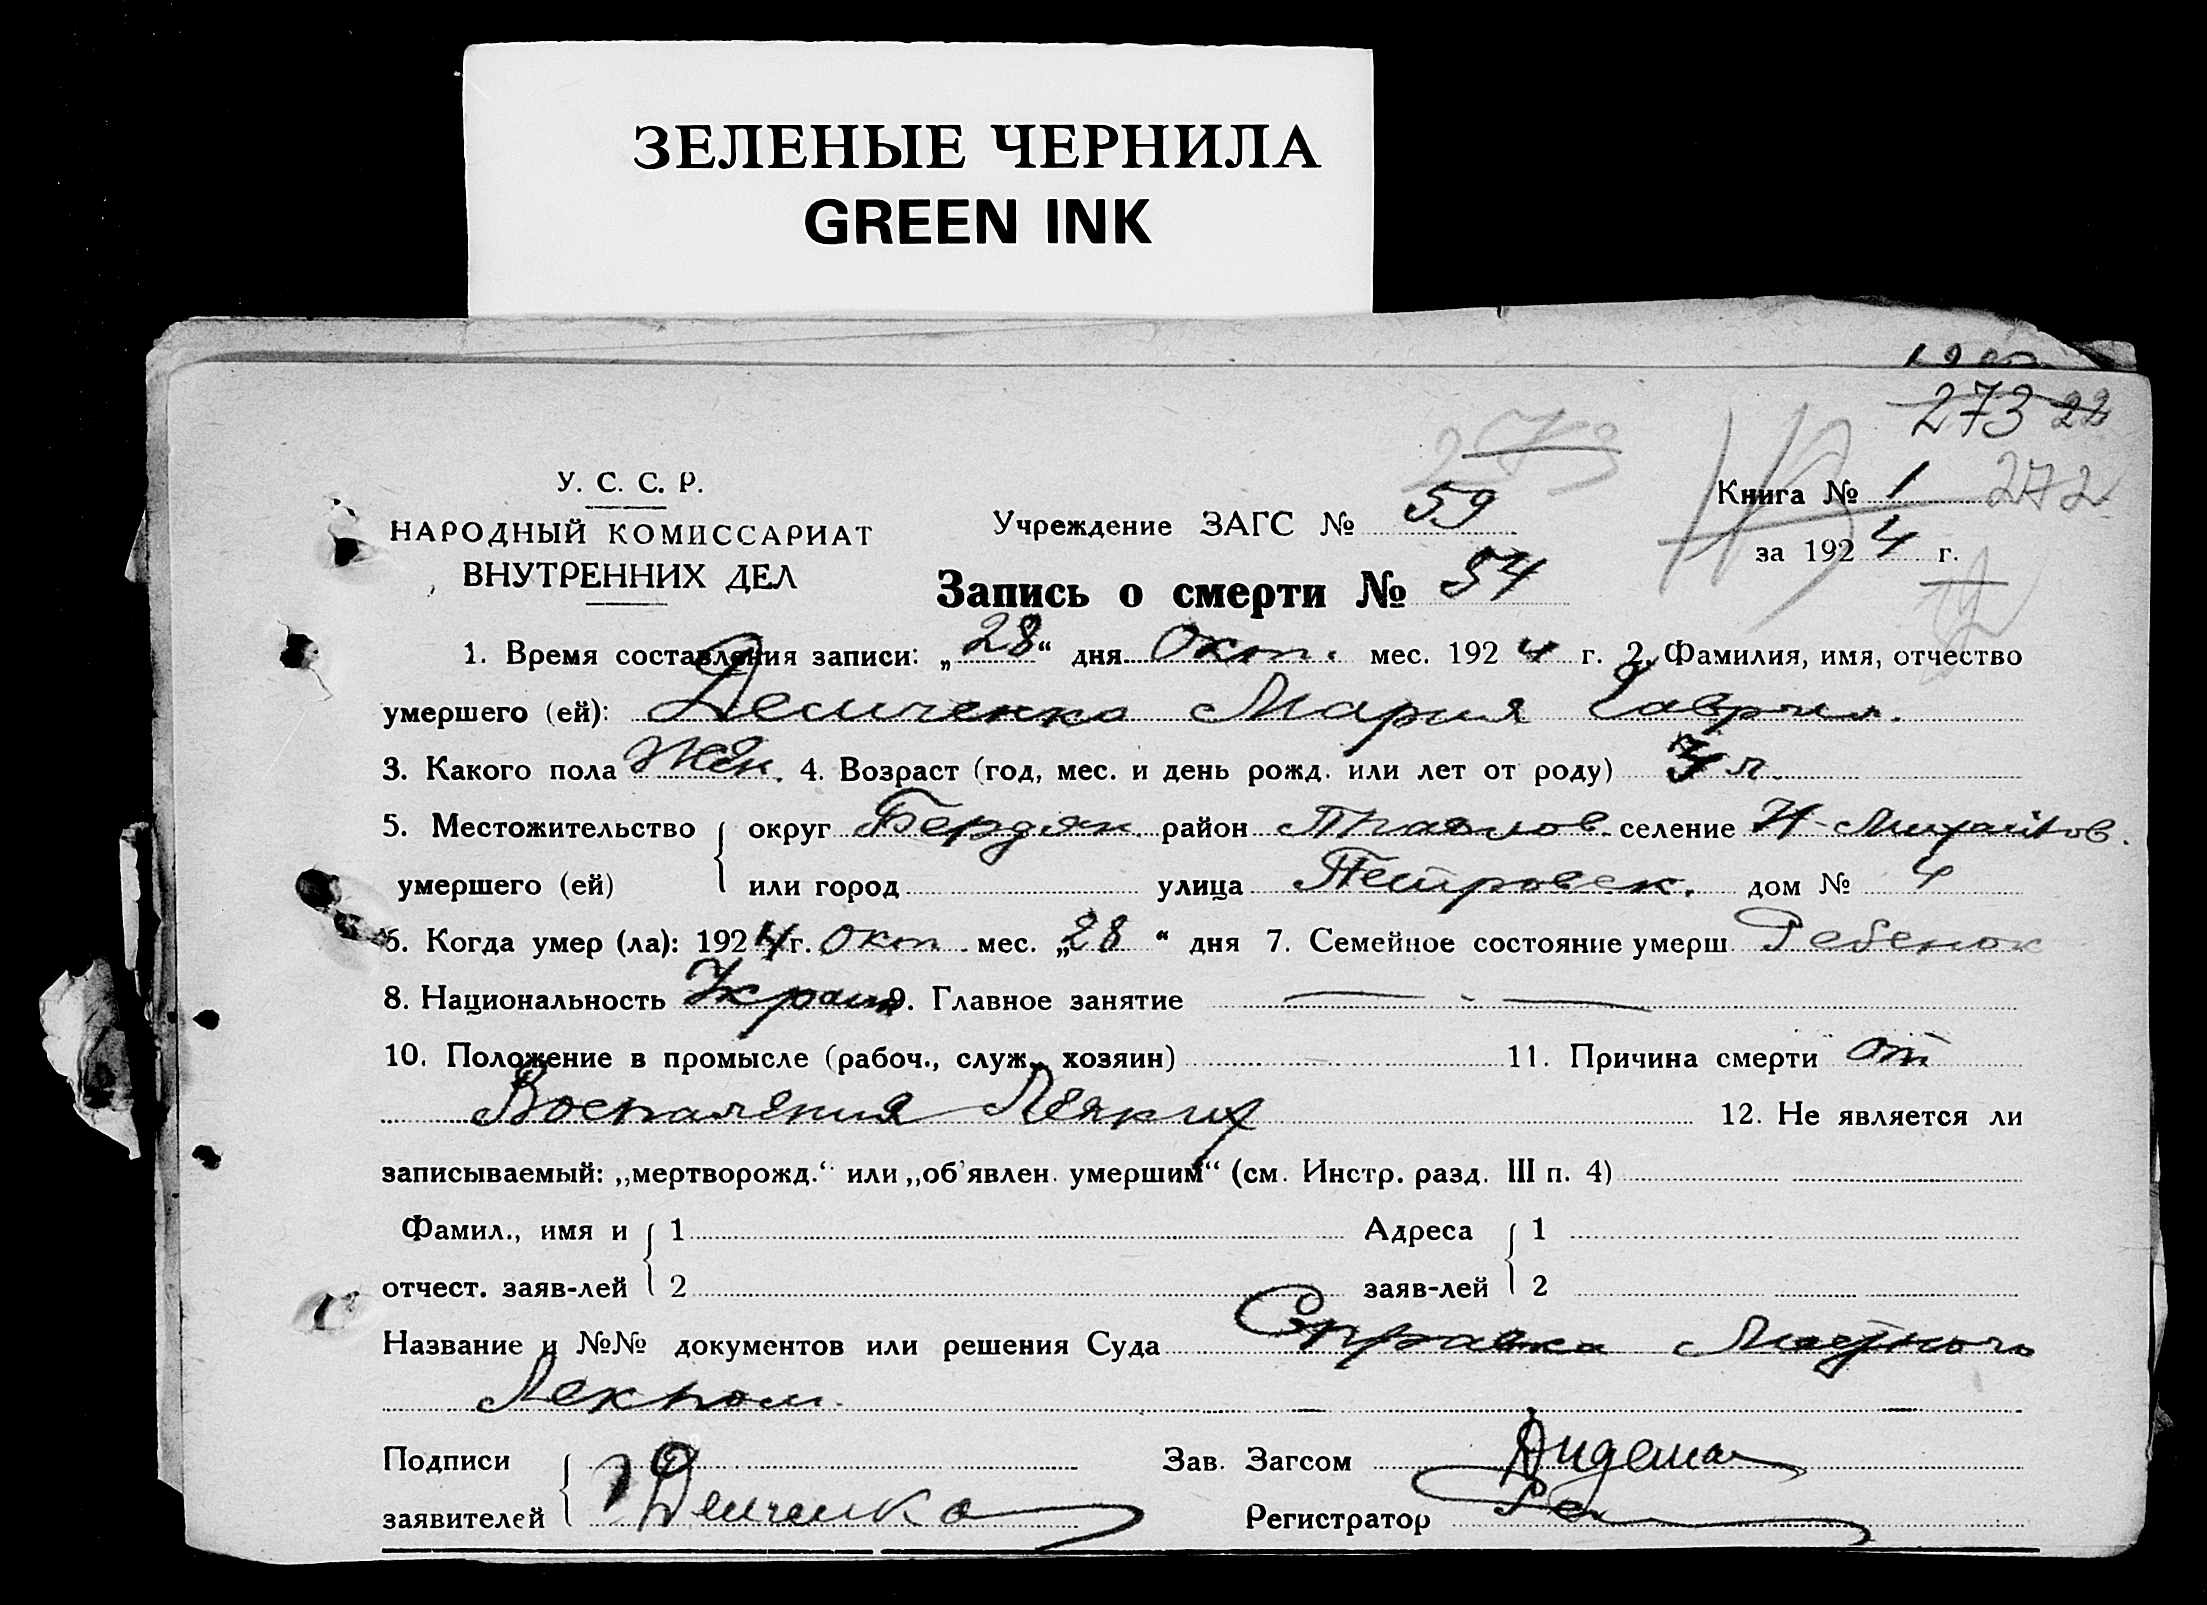 ЗЕЛЕНЫЕ ЧЕРНИЛА
GREEN INK
273 22
273
У. С. С. Р.
Книга № 1 272
НАРОДНЫЙ КОМИССАРИАТ
Учреждение ЗАГС № 59
за 1924 г.
ВНУТРЕННИХ ДЕЛ
Запись о смерти № 54
1. Время составления записи: „28“ дня Окт. мес. 1924 г. 2. Фамилия, имя, отчество
умершего (ей): Демченко Мария Гаврил.
3. Какого пола Жен. 4. Возраст (год, мес. и день рожд. или лет от роду) 3 л.
5. Местожительство округ Бердян. район Павлов. селение Н-Михайлов.
умершего (ей) или город улица Петровск. дом № 4
6. Когда умер (ла): 1924 г. Окт. мес. „28“ дня 7. Семейное состояние умерш. Ребенок
8. Национальность Украин 9. Главное занятие
10. Положение в промысле (рабоч., служ., хозяин) 11. Причина смерти от
Воспаления Легких 12. Не является ли
записываемый: „мертворожд.“ или „об'явлен. умершим“ (см. Инстр. разд. III п. 4)
Фамил., имя и 1 Адреса 1
отчест. заяв-лей 2 заяв-лей 2
Название и №№ документов или решения Суда Справка Местного
Лекпом.
Подписи Зав. Загсом
заявителей Демченко Регистратор